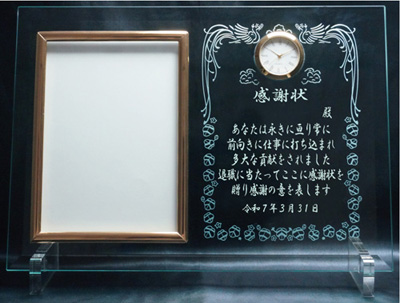 感謝状
殿
あなたは永きに亘り常に
前向きに仕事に打ち込まれ
多大な貢献をされました
退職に当たってここに感謝状を
贈り感謝の意を表します
令和7年3月31日